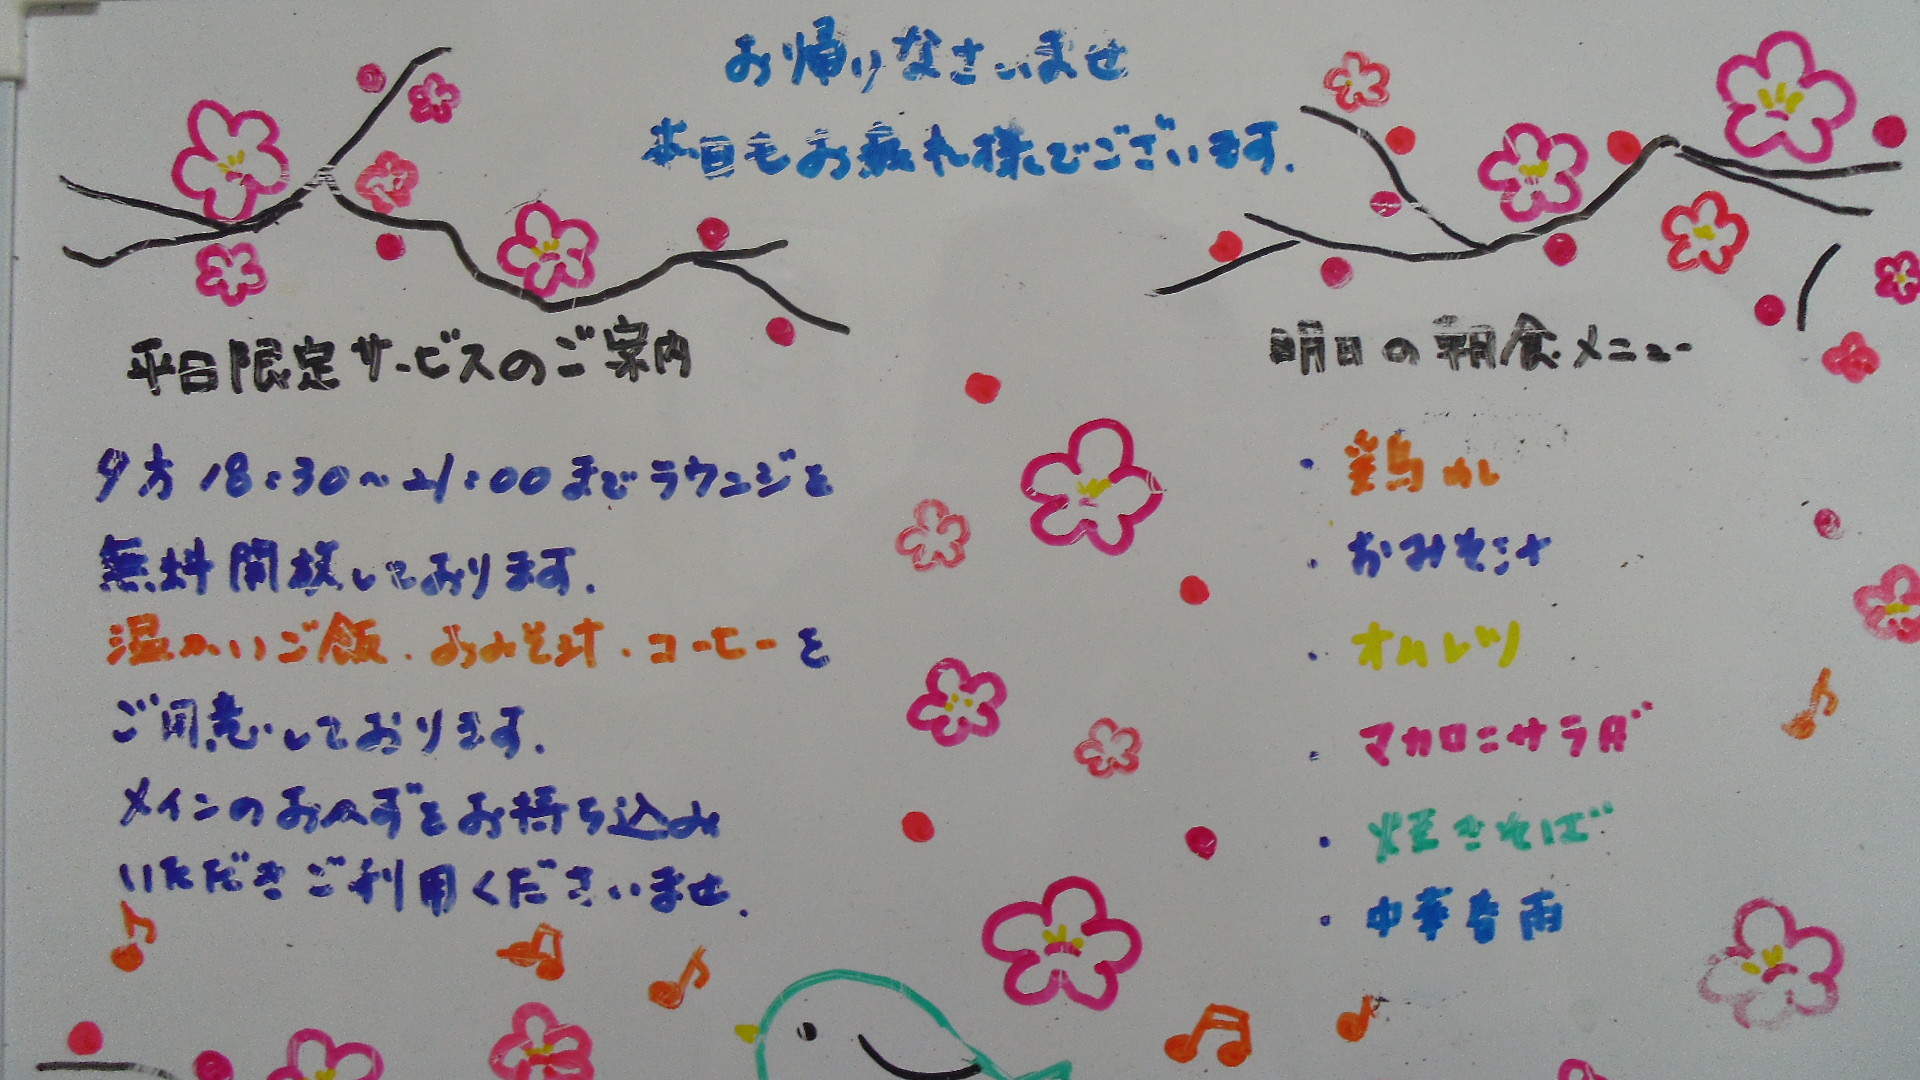 お帰りなさいませ
本日もお疲れ様でございます.
平日限定サービスのご案内
夕方18:30〜21:00までラウンジを
無料開放しております.
温かいご飯.おみそ汁.コーヒーを
ご用意しております.
メインのおかずをお持ち込み
いただきご利用くださいませ.
明日の朝食メニュー
・鶏めし
・おみそ汁
・オムレツ
・マカロニサラダ
・焼きそば
・中華春雨